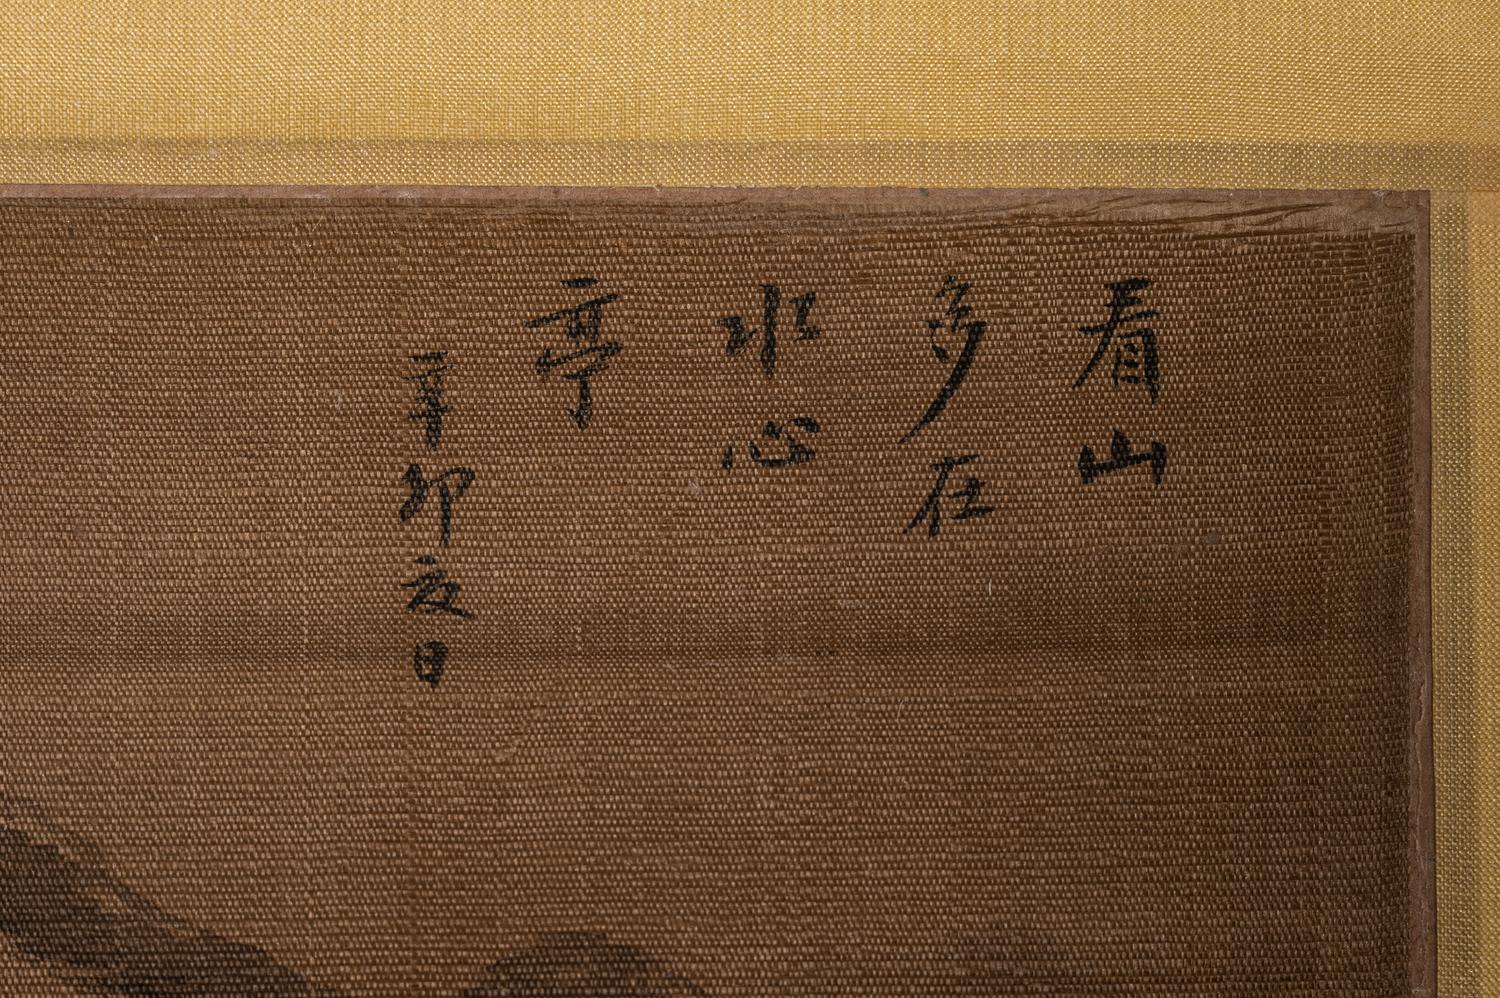 看山
多在
水心
亭
辛卯亥日